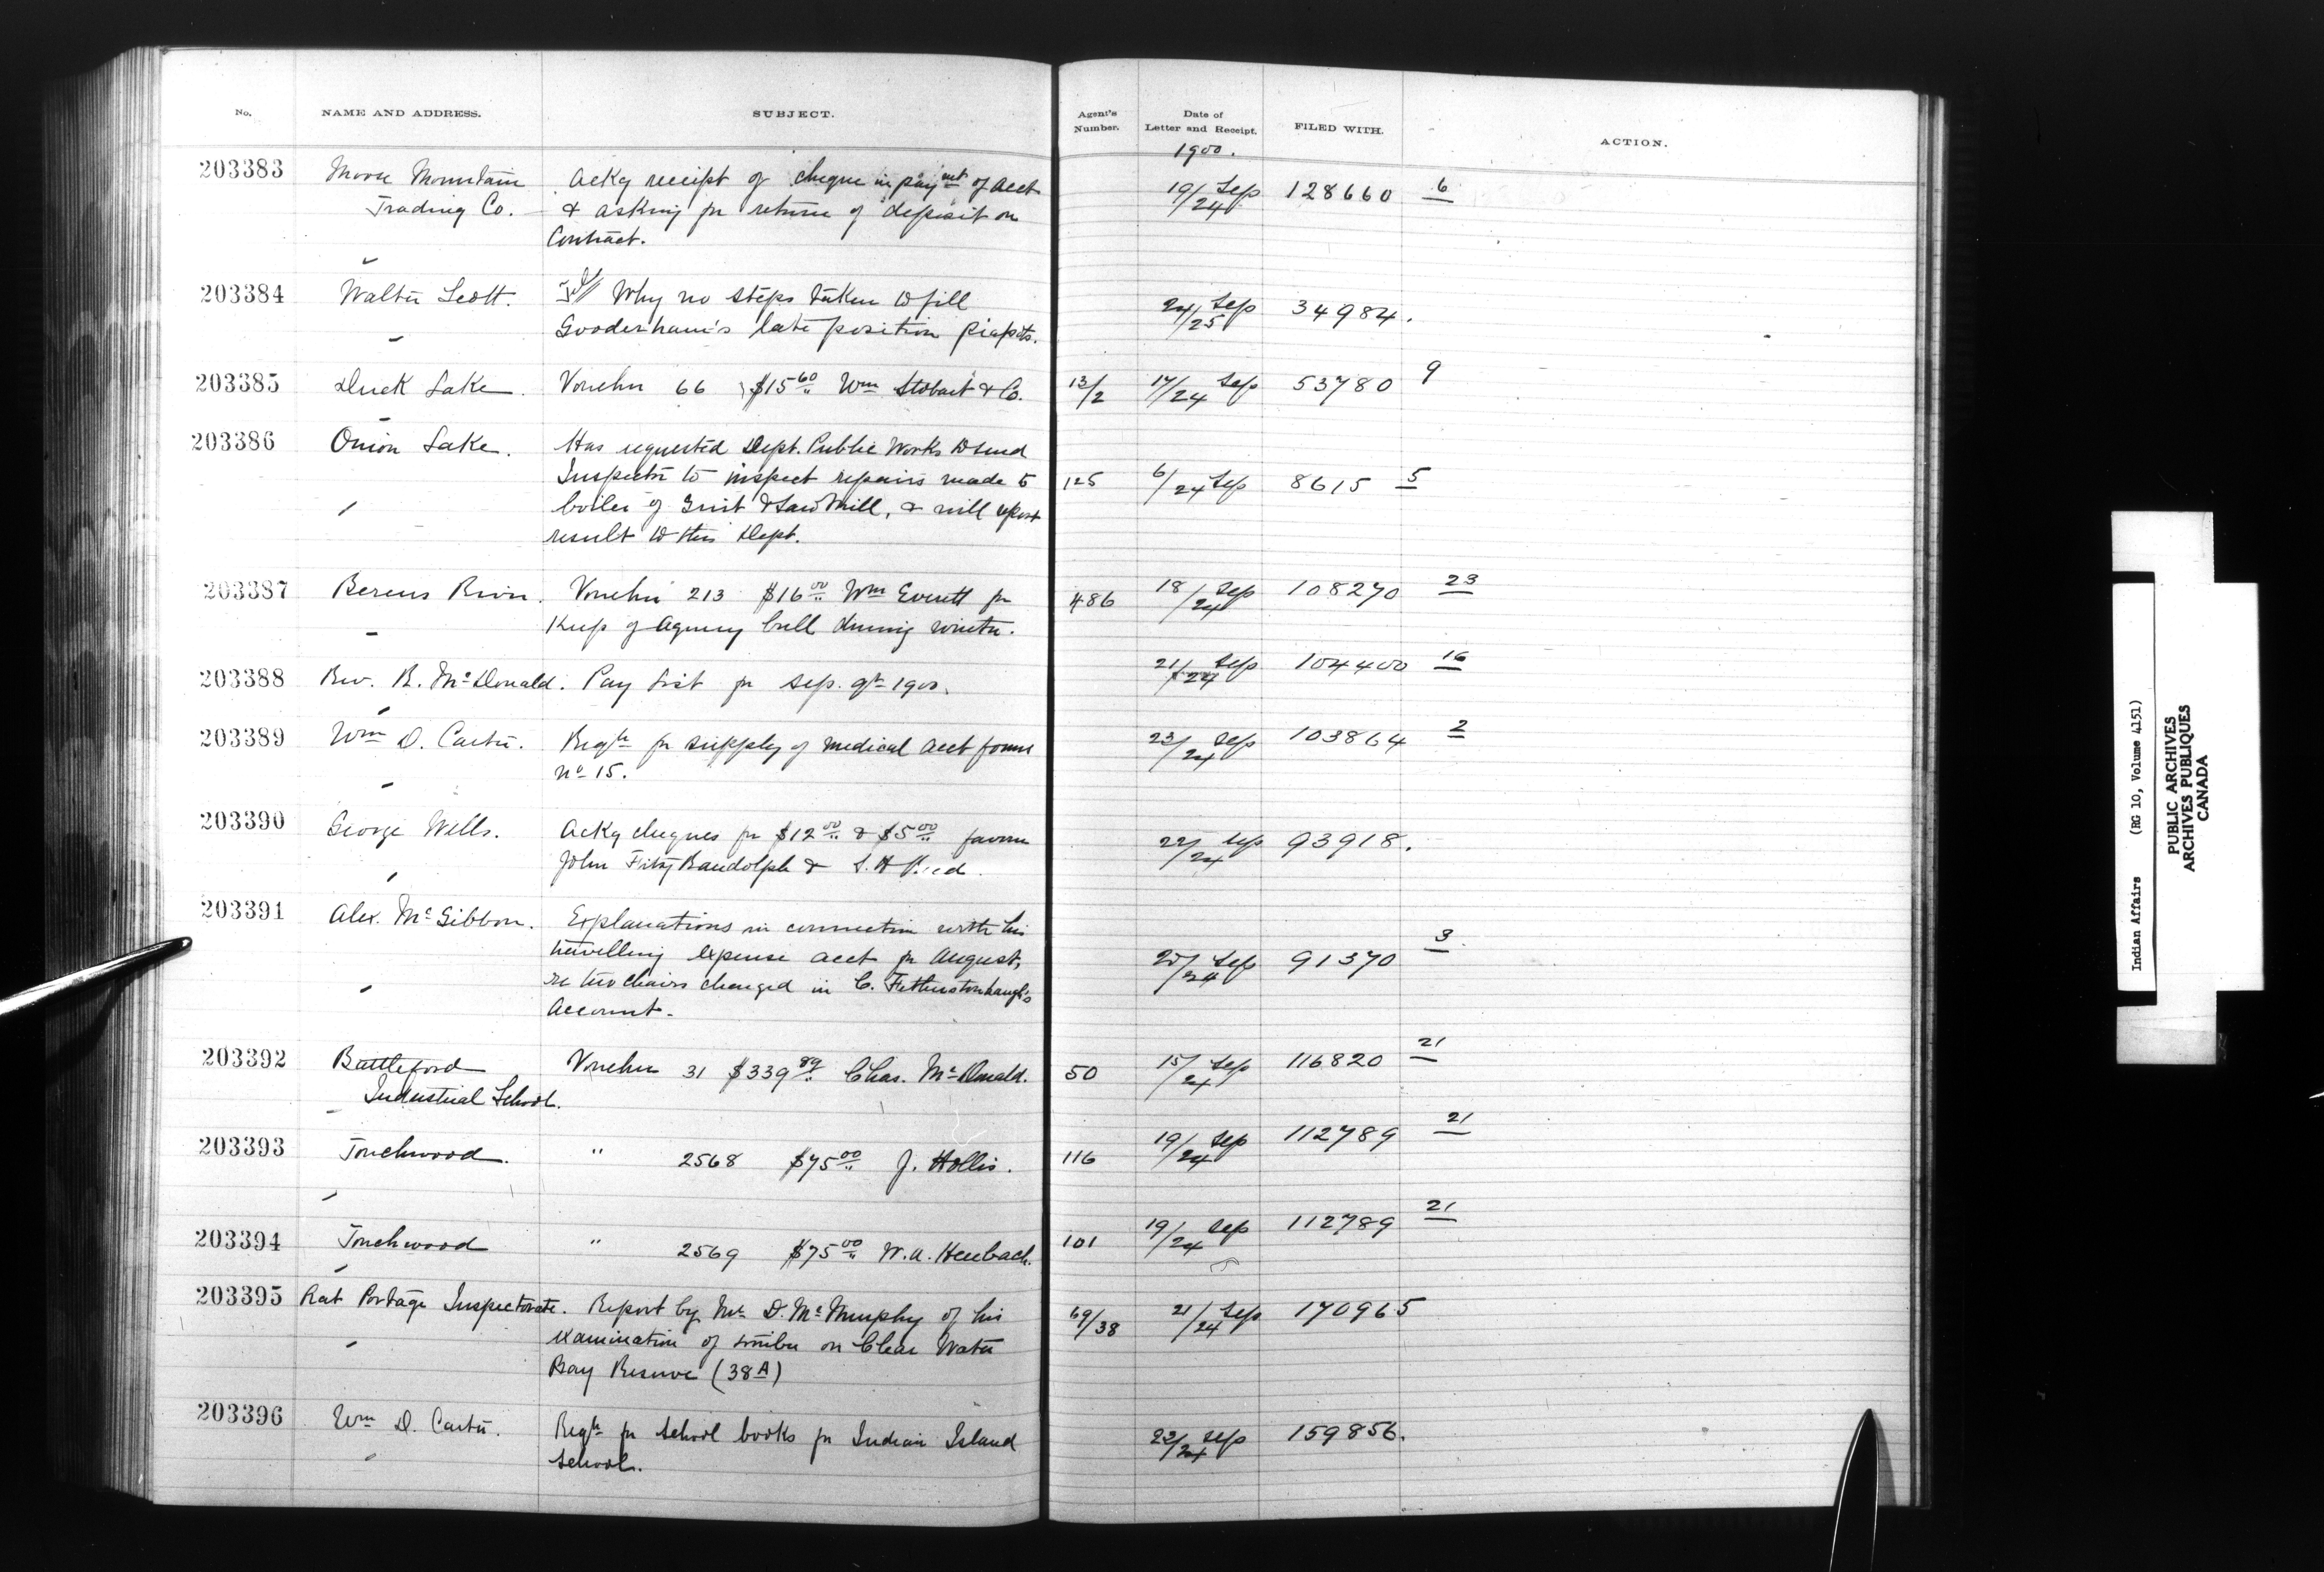 No. NAME AND ADDRESS. SUBJECT. Agent's Number. Date of Letter and Receipt. FILED WITH. ACTION.
1900.
203383 Moose Mountain Acky receipt of cheque in paymt of acct 19/24 Sep 128660 6
Trading Co. & asking for return of deposit on
Contract.
203384 Walter Scott. Tel/ Why no steps taken to fill 24/25 Sep 34984.
Gooderham's late position Piapots.
203385 Duck Lake. Voucher 66 $15 60 Wm Stobart & Co. 13/2 17/24 Sep 53780 9
203386 Onion Lake. Has requested Dept. Public Works to send
Inspector to inspect repairs made to 125 6/24 Sep 8615 5
boiler of Grist & Saw Mill, & will report
result to this Dept.
203387 Berens River. Voucher 213 $16 00 Wm Everett for 486 18/24 Sep 108270 23
Keep of Agency bull during winter.
203388 Rev. R. McDonald. Pay List for Sep. qr 1900. 21/24 Sep 104400 16
203389 Wm D. Carter. Reqn for supply of medical acct forms 23/24 Sep 103864 2
No 15.
203390 George Wells. Acky cheques for $12 00 & $5 00 favour 22/24 Sep 93918.
John Fitz Randolph & S. A
203391 Alex. McGibbon. Explanations in connection with his
travelling expense acct for August, 20/24 Sep 91370 3
re two chairs charged in C. Fetherstonhaugh's
Account.
203392 Battleford Voucher 31 $339 89 Chas. McDonald. 50 15/24 Sep 116820 21
Industrial School.
203393 Touchwood. " 2568 $75 00 J. Hollis. 116 19/24 Sep 112789 21
203394 Touchwood " 2569 $75 00 W.A. Heubach. 101 19/24 Sep 112789 21
203395 Rat Portage Inspectorate. Report by Mr D. McMurphy of his 69/38 21/24 Sep 170965
examination of timber on Clear Water
Bay Reserve (38A)
203396 Wm D. Carter. Reqn for school books for Indian Island 23/24 Sep 159856.
School.
Indian Affairs (RG 10, Volume 4151)
PUBLIC ARCHIVES
ARCHIVES PUBLIQUES
CANADA